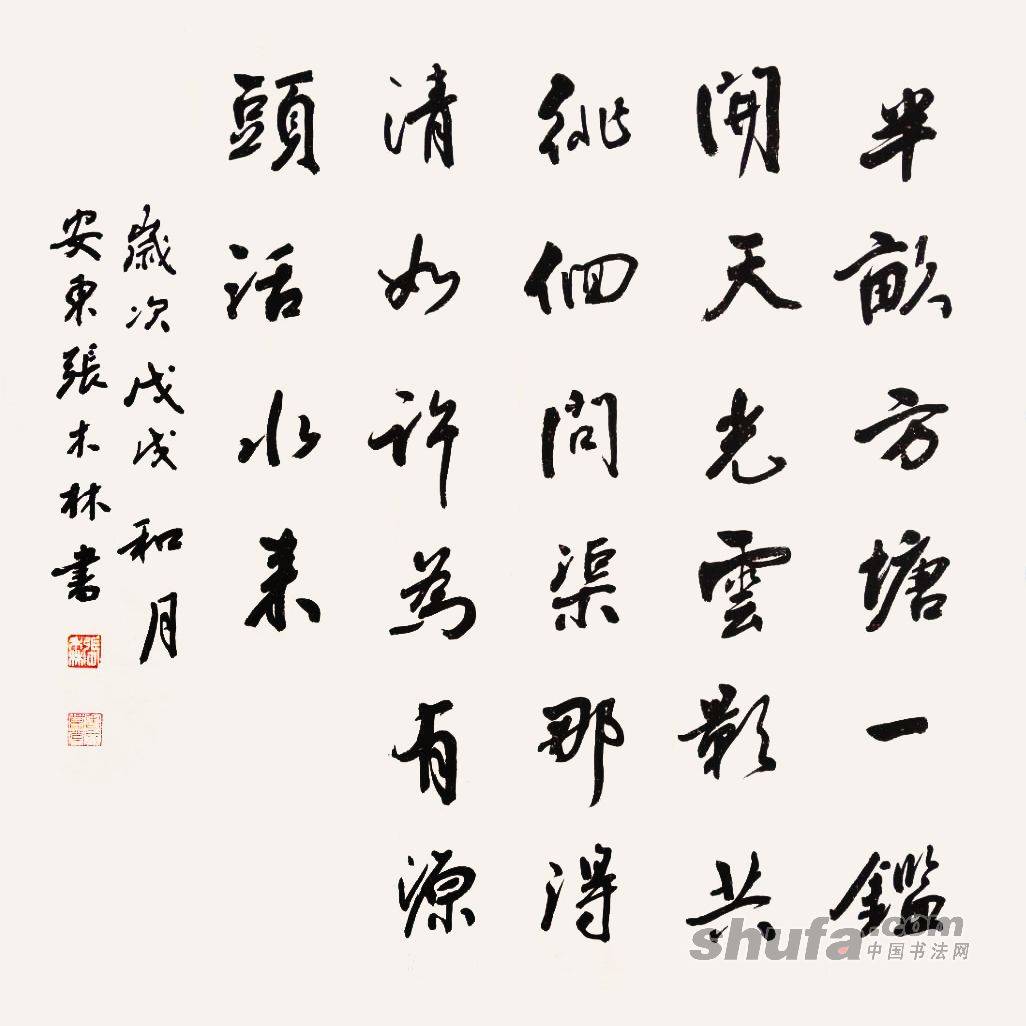 半畝方塘一鑑
開天光雲影共
徘徊問渠那得
清如許為有源
頭活水来
歲次戊戌和月
安東張木林書
shufa.com
中国书法网